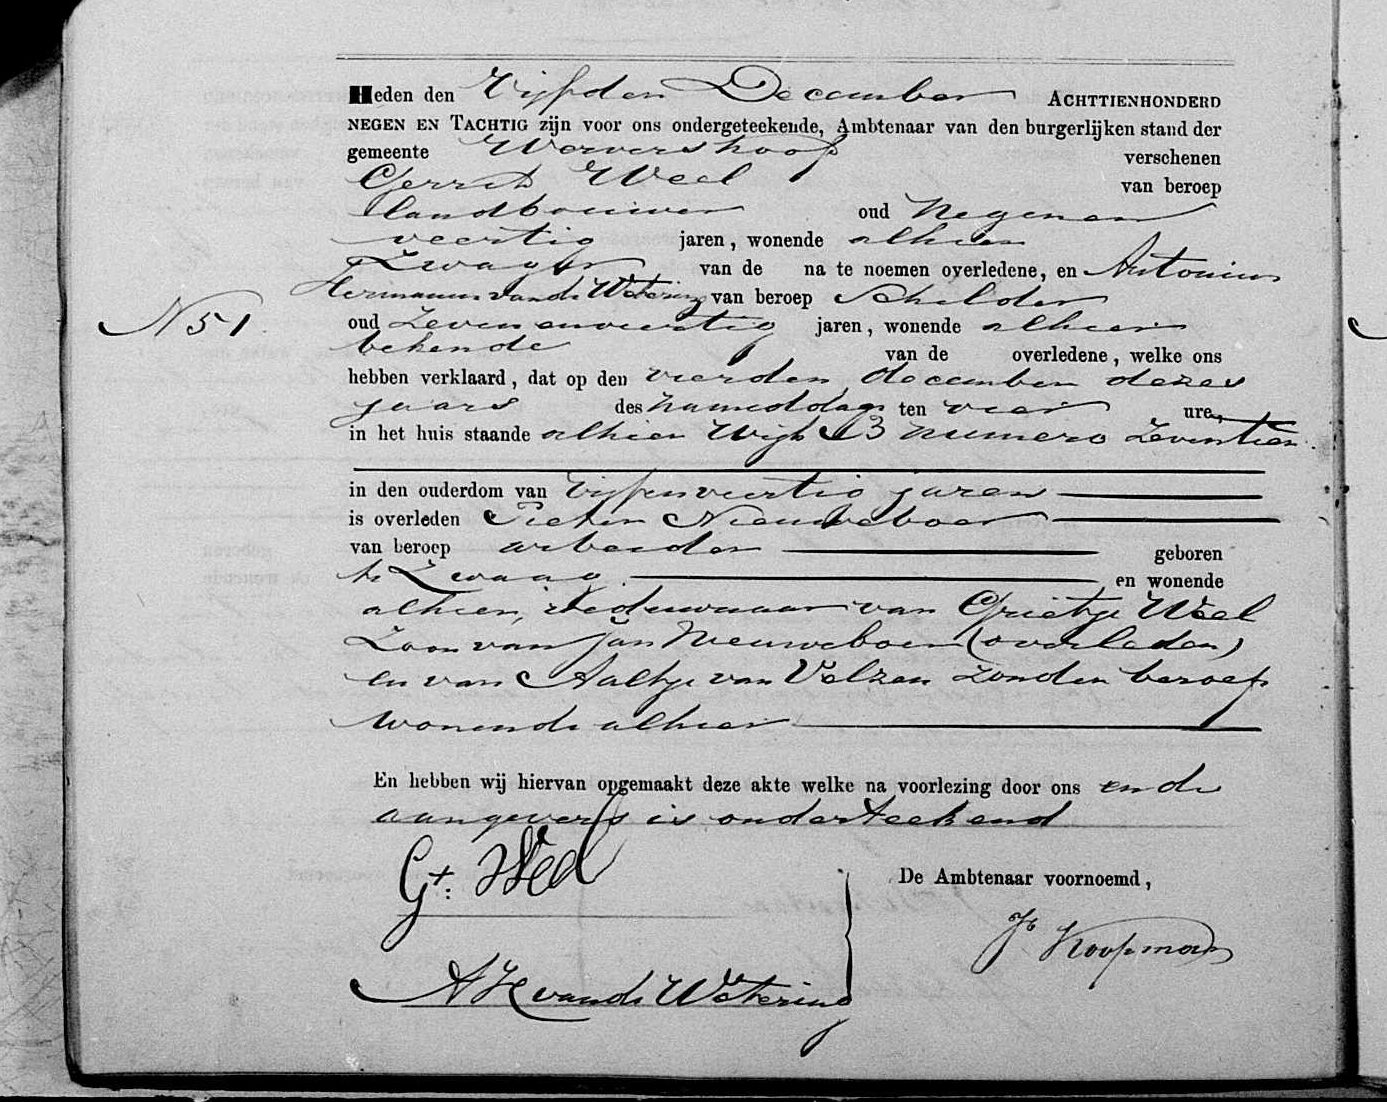 Heden den Vijfden December ACHTTIENHONDERD
NEGEN EN TACHTIG zijn voor ons ondergeteekende, Ambtenaar van den burgerlijken stand der
gemeente Wervershoof verschenen
Gerrit Weel van beroep
landbouwer oud negenen
veertig jaren, wonende alhier
Zwager van de na te noemen overledene, en Antonius
Hermanus van de Wetering van beroep Schilder
N 51.
oud Zevenenveertig jaren, wonende alhier
bekende van de overledene, welke ons
hebben verklaard, dat op den vierden december dezes
jaars des namiddags ten vier ure,
in het huis staande alhier Wijk B numero Zeventien
in den ouderdom van Vijfenveertig jaren
is overleden Pieter Nieuweboer
van beroep arbeider geboren
te Zwaag en wonende
alhier, Weduwnaar van Grietje Weel
Zoon van Jan Nieuweboer (overleden)
en van Aaltje van Velzen zonder beroep
wonende alhier
En hebben wij hiervan opgemaakt deze akte welke na voorlezing door ons en de
aangevers is onderteekend
Gt. Weel
De Ambtenaar voornoemd,
Koopman
A H van de Wetering